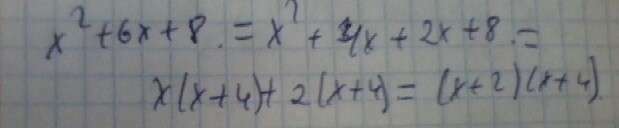 x²+6x+8.=x²+4x+2x+8.=
x(x+4)+2(x+4)=(x+2)(x+4).